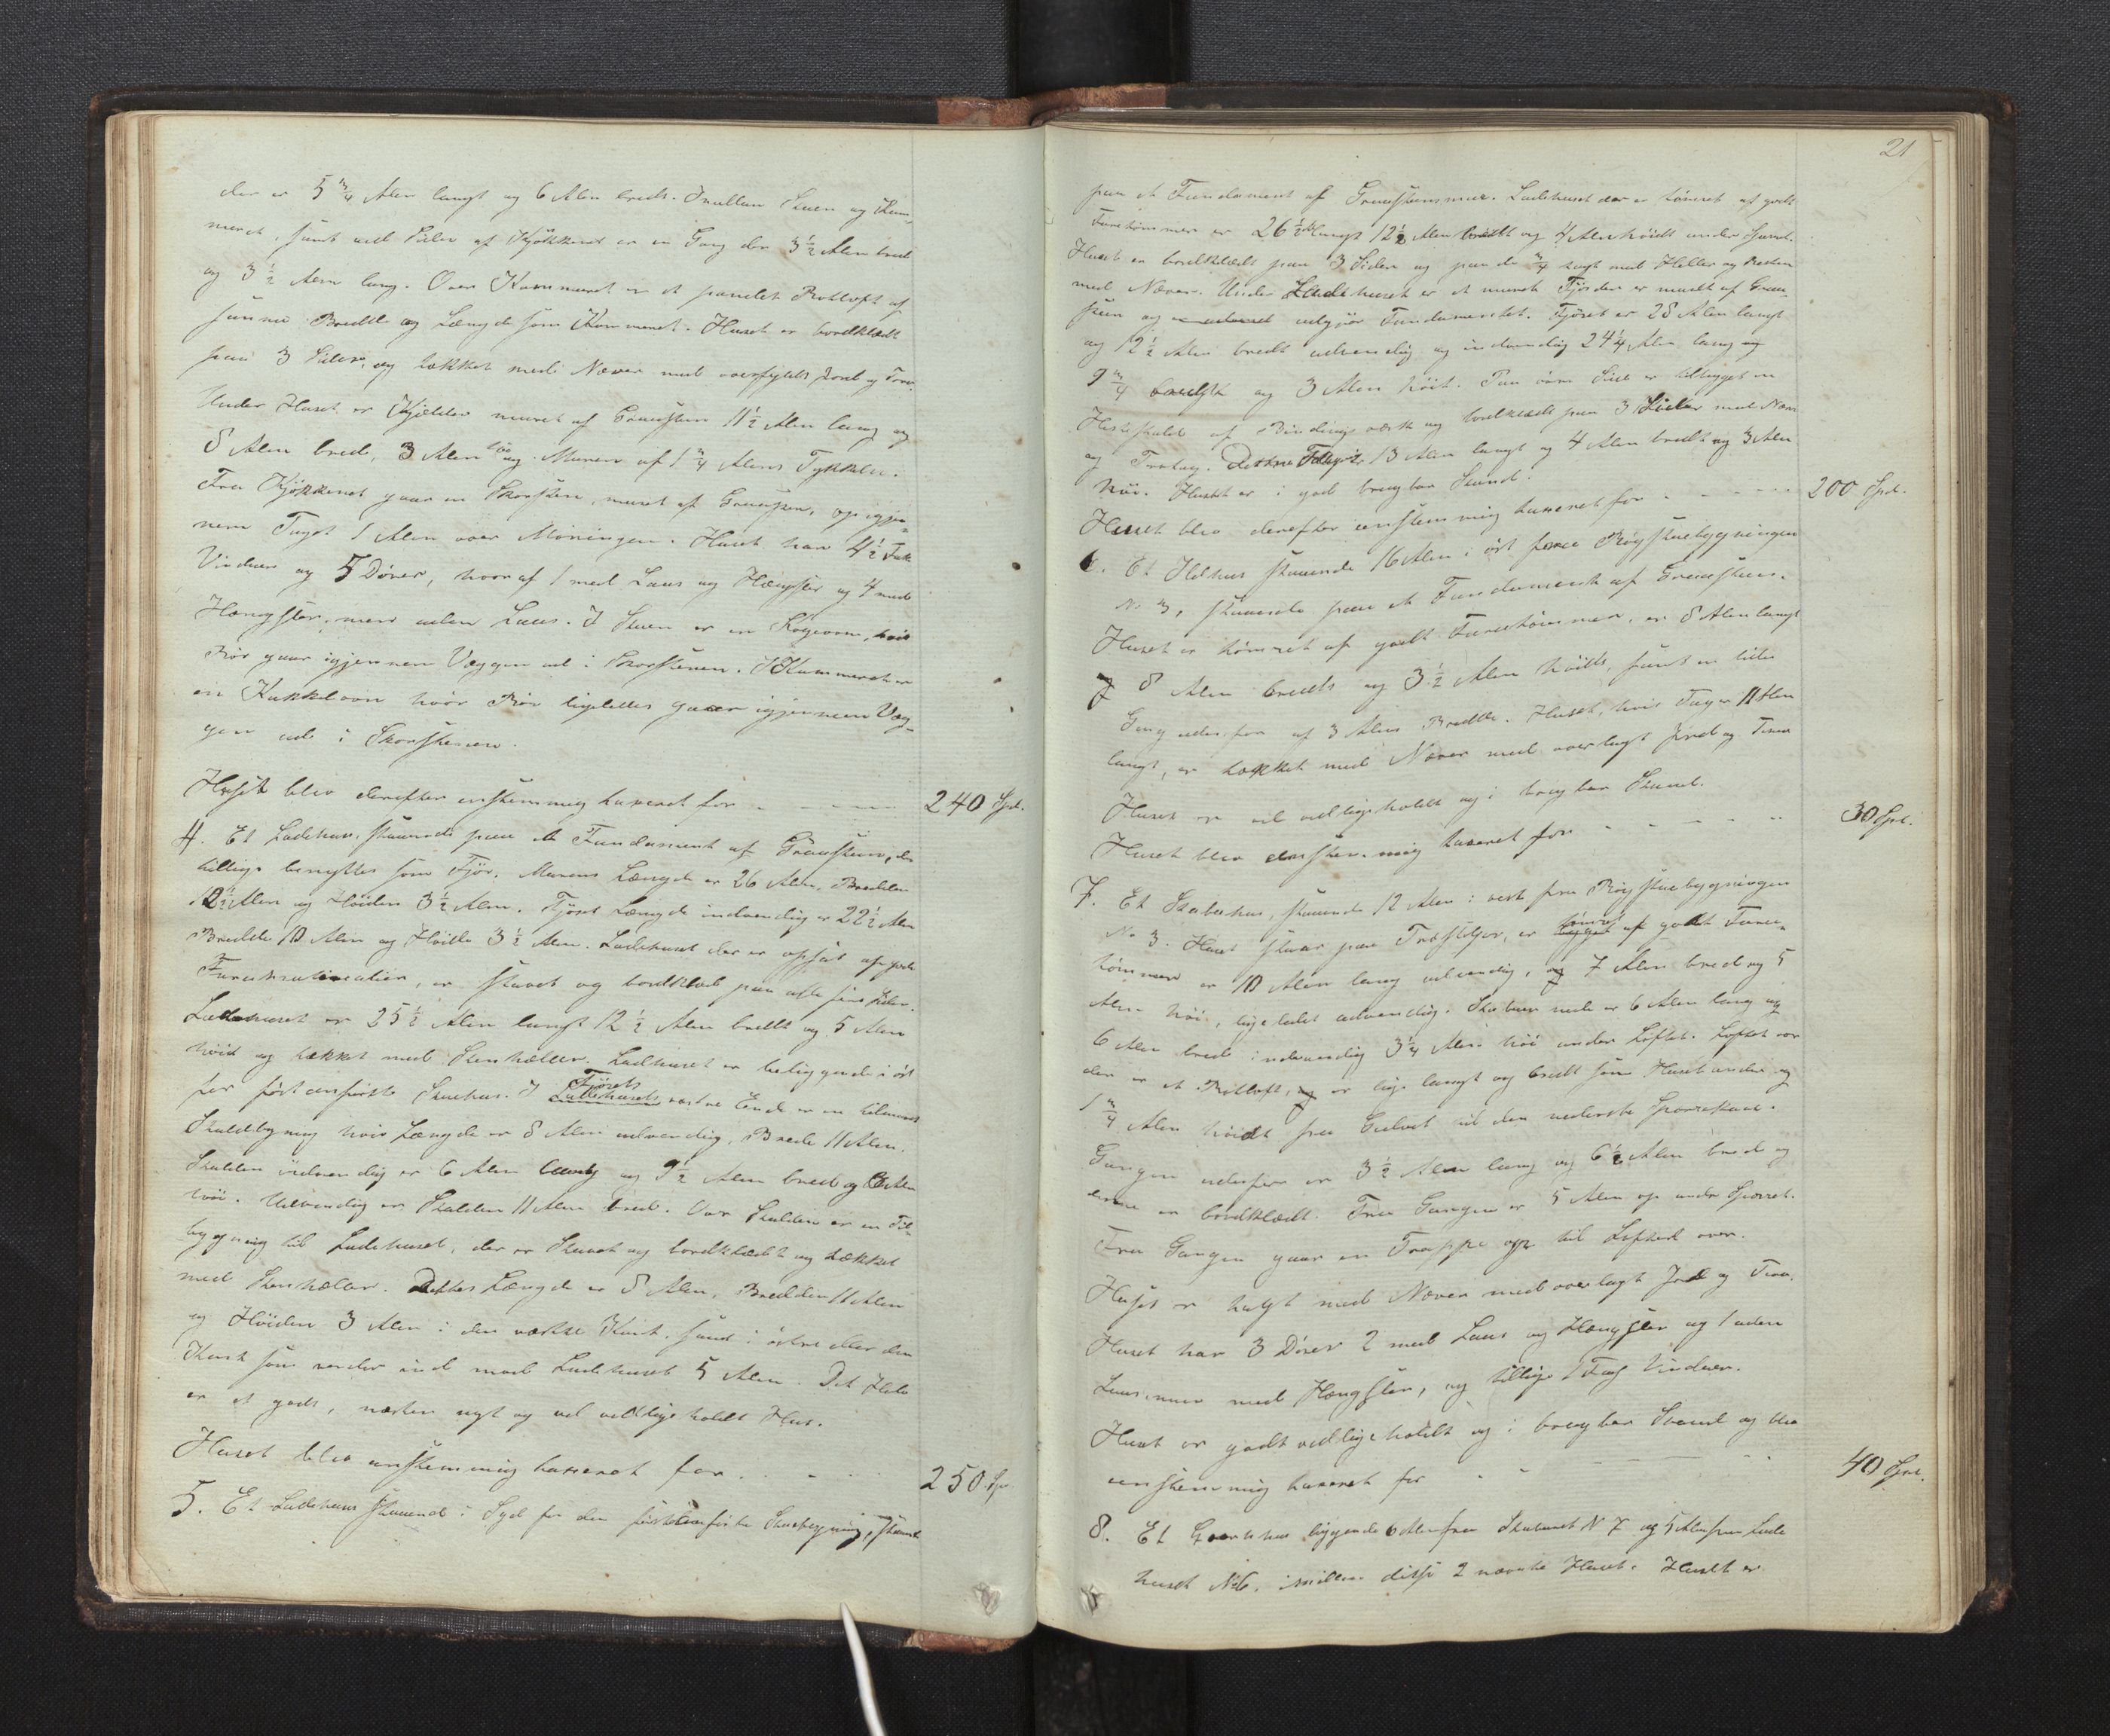 der er 5 3/4 Alen langt og 6 Alen bredt. Imellem Stuen og Kam-
meret, samt ved Siden af Kjökkenet er en Gang der 3 1/2 Alen bred
og 3 1/2 Alen lang. Over Kammeret er et panelet Rotloft af
samme Bredde og Længde som Kammeret. Huset er bordklædt
paa 3 Sider, og tækket med Næver med overfyldt Jord og Torv
Under Huset er Kjelder muret af Graasten 11 1/2 Alen lang og
8 Alen bred, 3 Alen höi og Muren af 1 3/4 Alens Tykkelse.
Fra Kjökkenet gaar en Skorsten, muret af Graasten, op igjen-
nem Taget 1 Alen over Möningen. Huset har 4 1/2 Fak
Vinduer og 5 Dörer, hvoraf 1 med Laas og Hængsler og 4 med
Hængsler, men uden Laas. I Stuen er en Kogeovn, hvis
Rör gaar igjennem Væggen ud i Skorstenen. I Kammeret er
en Kakkelovn hvis Rör ligeledes gaaer igjennem Væg-
gen ud i Skorstenen.
Huset blev derefter enstemmig taxeret for - - - - 240 Spd.
4. Et Ladehus, staaende paa et Fundament af Graasten, der
tillige benyttes som Fjös. Murens Længde er 26 Alen, Bredden
12 1/2 Alen og Höiden 3 1/2 Alen. Fjöset Længde indvendig er 22 1/2 Alen
Bredde 10 Alen og Höide 3 1/2 Alen. Ladehuset der er opsat af godt
Furumaterialier, er stavet og bordklædt paa alle sine Sider.
Ladehuset er 25 1/2 Alen langt 12 1/2 Alen bredt og 5 Alen
höit og tækket med Stenheller. Ladhuset er beliggende i öst
for först anförte Stuehus. I Fjösets Ladehusets vestre Ende er en tilmuret
Staldbygning hvis Længde er 8 Alen udvendig, Brede 11 Alen.
Stalden indvendig er 6 Alen lang og 9 1/2 Alen bred og 3 Alen
höi. Udvendig er Stalden 11 Alen bred. Over Stalden er en Til-
bygning til Ladehuset, der er Stavet og bordklædt og tækket
med Stenheller. Dettes Længde er 8 Alen, Bredden 11 Alen
og Höiden 3 Alen i den vestre Kant, samt i östre eller den
Kant som vender ind mod Ladehuset 5 Alen. Det Hele
er et godt, næsten nyt og vel vedligeholdt Hus.
Huset blev enstemmig taxeret for . . - - - 250 Spd
5. Et Ladehus staaende i Syd for den först anförte Stuebygning, staaende
21
paa et Fundament af Graastensmur. Ladehuset der er tömret af godt
Furutömmer er 26 1/2 Al. langt 12 1/2 Alen bredt og 4 Alen höidt under Sparret.
Huset er bordklædt paa 3 Sider og paa de 3/4 tagt med Heller og Resten
med Næver. Under Ladehuset er et muret Fjös der er muret af Graa-
sten og udgjör Fundamentet. Fjöset er 28 Alen langt
og 12 1/2 Alen bredt udvendig og indvendig 24 1/4 Alen lang og
9 3/4 bredt og 3 Alen höit. Paa övre Side er tilbygget en
Hestestald af Bindingsværk og bordklædt paa 3 Sider med Næver
og Torvtag. Dettes 13 Alen langt og 4 Alen bredt og 3 Alen
höi. Huset er i god brugbar Stand.
Huset blev derefter enstemmig taxeret for - - - - - 200 Spd.
6. Et Ildhus staaende 16 Alen i öst fra Røgstuebygningen
No 3, staaende paa et Fundament af Graasten.
Huset er tömret af godt Furutömmer, er 8 Alen langt
og 8 Alen bredt og 3 1/2 Alen höidt, samt en liden
Gang udenfor af 3 Alens Bredde. Huset, hvis Tag er 11 Alen
langt, er tækket med Næver med overlagt Jord og Torv
Huset er vel vedligeholdt og i brugbar Stand.
Huset blev enstemmig taxeret for - - - - - 30 Spd.
7. Et Stabeshus, staaende 12 Alen i vest fra Røgstuebygningen
No 3. Huset staar paa Træstolper, er bygget tömret af godt Furu-
tömmer er 10 Alen lang udvendig, og 7 Alen bred og 5
Alen höi, ligeledes udvendig. Stabur nede er 6 Alen lang og
6 Alen bred indvendig 3 1/4 Alen höi under Loftet. Loftet over
der er et Rotloft, og er lige langt og bredt som Huset under og
1 3/4 Alen höidt fra Gulvet til den nederste Sparrekant.
Gangen udenfor er 3 1/2 Alen lang og 6 1/2 Alen bred og
denne er bordklædt. Fra Gangen er 5 Alen op under Sparret.
Fra Gangen gaar en Trappe op til Loftet over.
Huset er tagt med Næver med overlagt Jord og Torv.
Huset har 3 Dörer 2 med Laas og Hængsler og 1 uden
Laas, men med Hængsler, og tillige 1 Fag Vinduer.
Huset er godt vedligeholdt og i brugbar Stand og blev
enstemmig taxeret for - - - - - 40 Spd.
8. Et liggende 6 Alen fra Staburet N 7 og 5 Alen fra Lade
huset No 6, imellem disse 2 nævnte Huset. Huset er